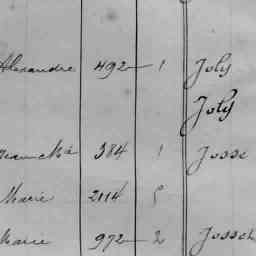 Alexandre 492 1 Joly
Joly
Jeanne Mie 384 1 Josse
Marie 2114 5
Marie 972 2 Josset